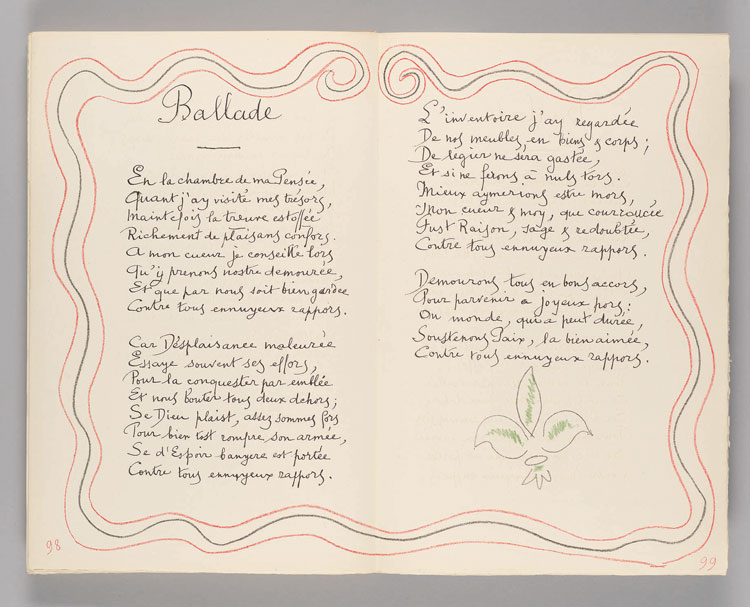 Ballade
En la chambre de ma Pensée,
Quant j'ay visité mes trésors,
Maintefois la treuve estoffée
Richement de plaisans confors.
A mon cueur je conseille lors
Qu'y prenons nostre demourée,
Et que par nous soit bien gardée
Contre tous ennuyeux rappors.
Car Desplaisance maleurée
Essaye souvent ses effors,
Pour la conquester par emblée
Et nous bouter tous deux dehors;
Se Dieu plaist, assez sommes fors
Pour bien tost rompre son armée,
Se d'Espoir banyere est portée
Contre tous ennuyeux rappors.
98
L'inventoire j'ay regardée
De nos meubles, en biens & corps;
De legier ne sera gastée,
Et si ne ferons à nuls tors.
Mieux aymerions estre mors,
Mon cueur & moy, que courroucée
Fust Raison, sage & redoubtée,
Contre tous ennuyeux rappors.
Demourons tous en bons accors,
Pour parvenir a joyeux pors;
On monde, qui a peut durée,
Soustenons Paix, la bien aimée,
Contre tous ennuyeux rappors.
99